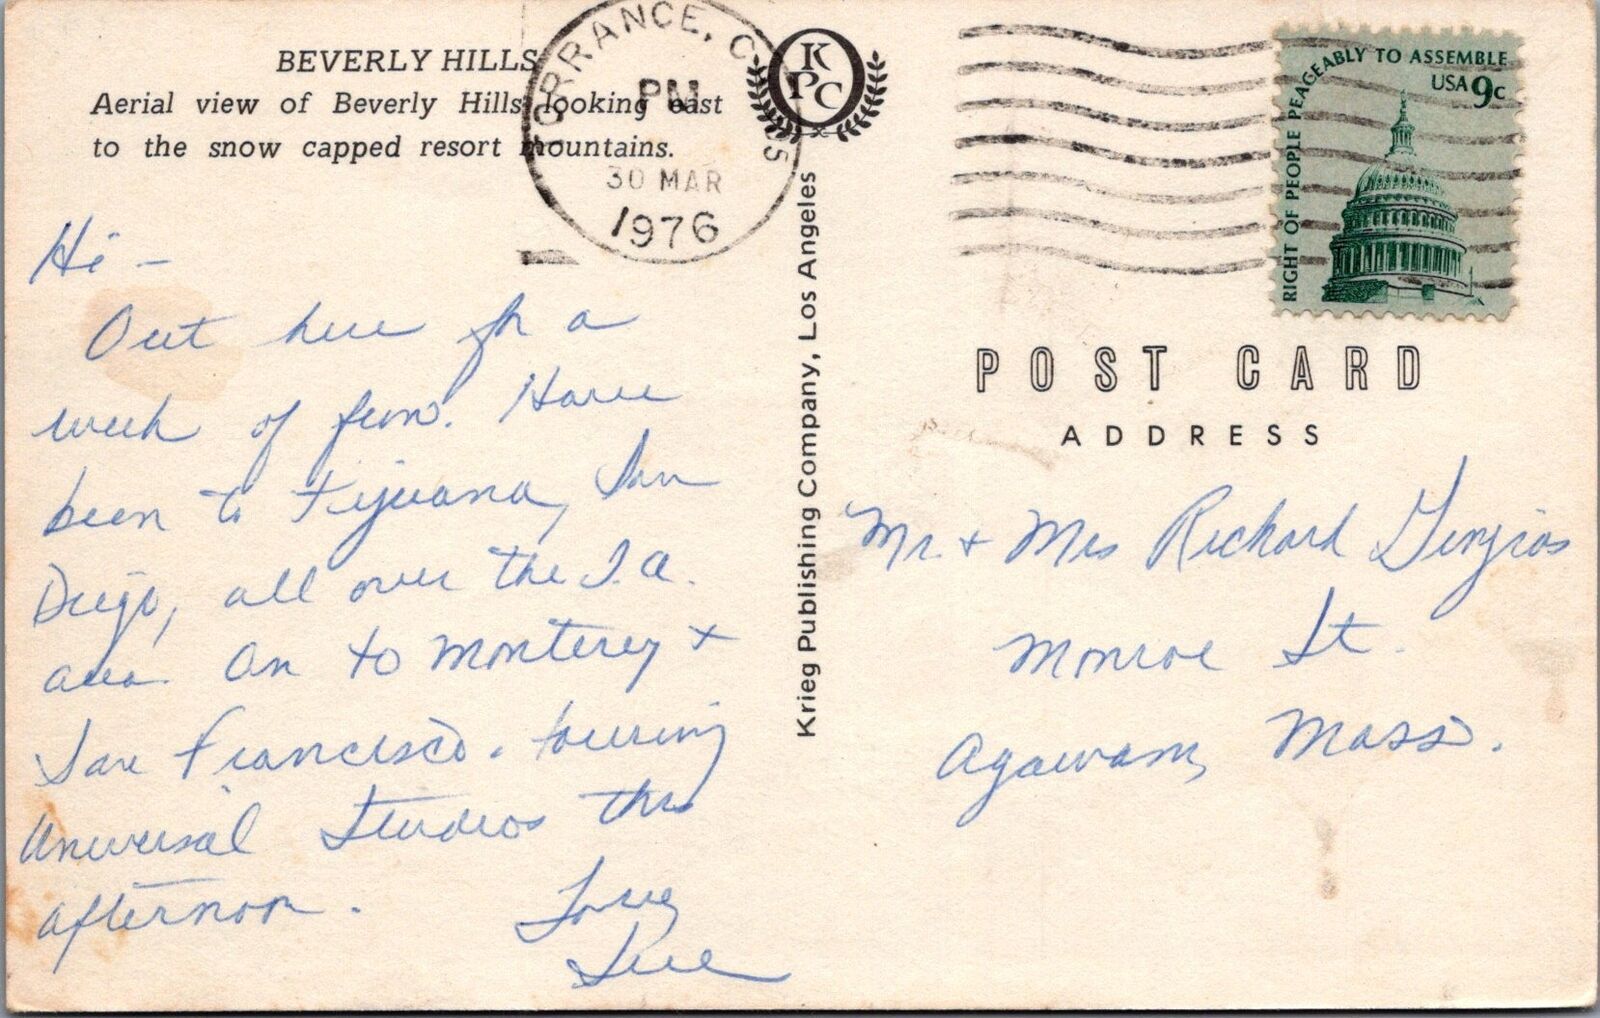 BEVERLY HILLS
Aerial view of Beverly Hills looking east
to the snow capped resort mountains.
Hi -
Out here for a
week of fun. Have
been to Tijuana, San
Diego, all over the L.A.
area. On to Monterey +
San Francisco. Touring
Universal Studios this
afternoon.
Love,
Sue
TORRANCE, CA 905
PM
30 MAR
1976
KPC
Krieg Publishing Company, Los Angeles
RIGHT OF PEOPLE PEACEABLY TO ASSEMBLE
USA 9c
POST CARD
ADDRESS
Mr. + Mrs Richard
Monroe St.
Agawam, Mass.